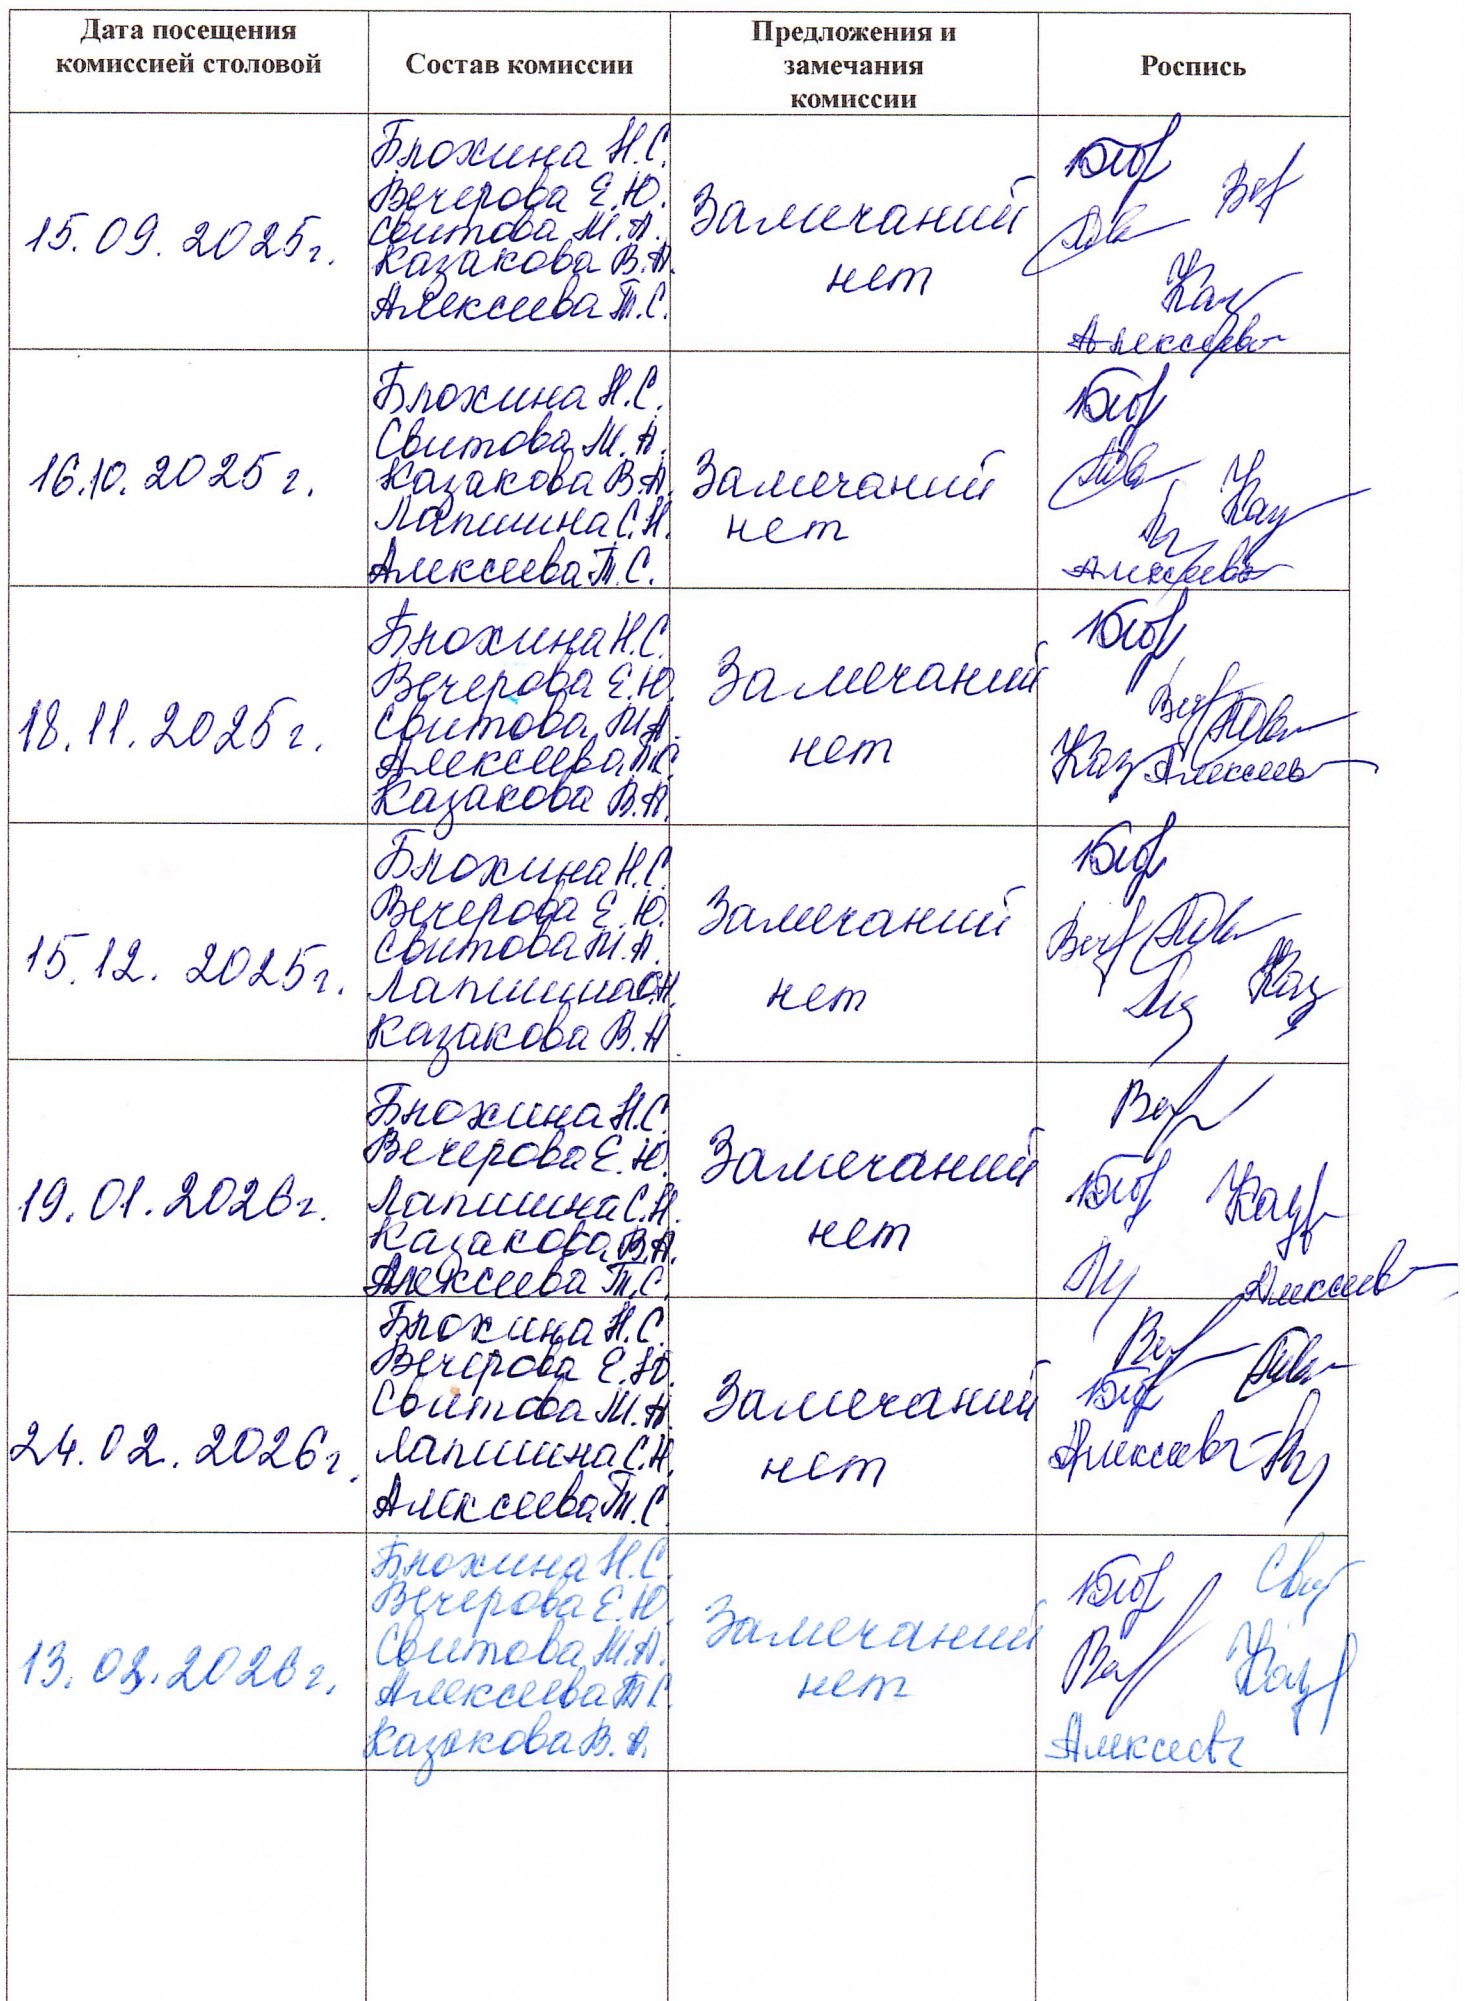 Дата посещения
комиссией столовой
Состав комиссии
Предложения и
замечания
комиссии
Роспись
15.09.2025г.
Блохина Н.С.
Вечерова Е.Ю.
Свитова М.А.
Казакова В.А.
Алексеева Т.С.
Замечаний
нет
Алексеева
16.10.2025г.
Блохина Н.С.
Свитова М.А.
Казакова В.А.
Лапшина С.Н.
Алексеева Т.С.
Замечаний
нет
Алексеева
18.11.2025г.
Блохина Н.С.
Вечерова Е.Ю.
Свитова М.А.
Алексеева Т.С.
Казакова В.А.
Замечаний
нет
Каз Алексеев
15.12.2025г.
Блохина Н.С.
Вечерова Е.Ю.
Свитова М.А.
Лапшина С.Н.
Казакова В.А.
Замечаний
нет
Каз
19.01.2026г.
Блохина Н.С.
Вечерова Е.Ю.
Лапшина С.Н.
Казакова В.А.
Алексеева Т.С.
Замечаний
нет
Алексеев
24.02.2026г.
Блохина Н.С.
Вечерова Е.Ю.
Свитова М.А.
Лапшина С.Н.
Алексеева Т.С.
Замечаний
нет
Алексеева
13.03.2026г.
Блохина Н.С.
Вечерова Е.Ю.
Свитова М.А.
Алексеева Т.С.
Казакова В.А.
Замечаний
нет
Свит
Каз
Алексеева